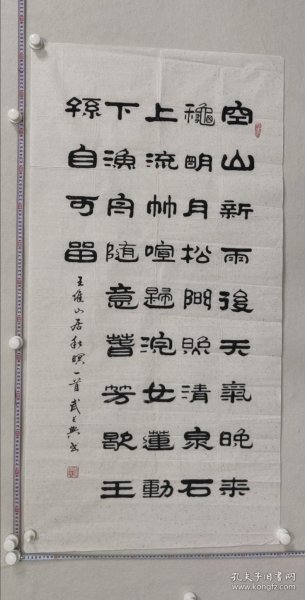 空山新雨後天氣晚来
穐明月松間照清泉石
上流竹喧歸浣女蓮動
下漁舟随意萅芳歇王
孫自可留
王维山居秋暝一首武典书
孔夫子旧书网
www.kongfz.com